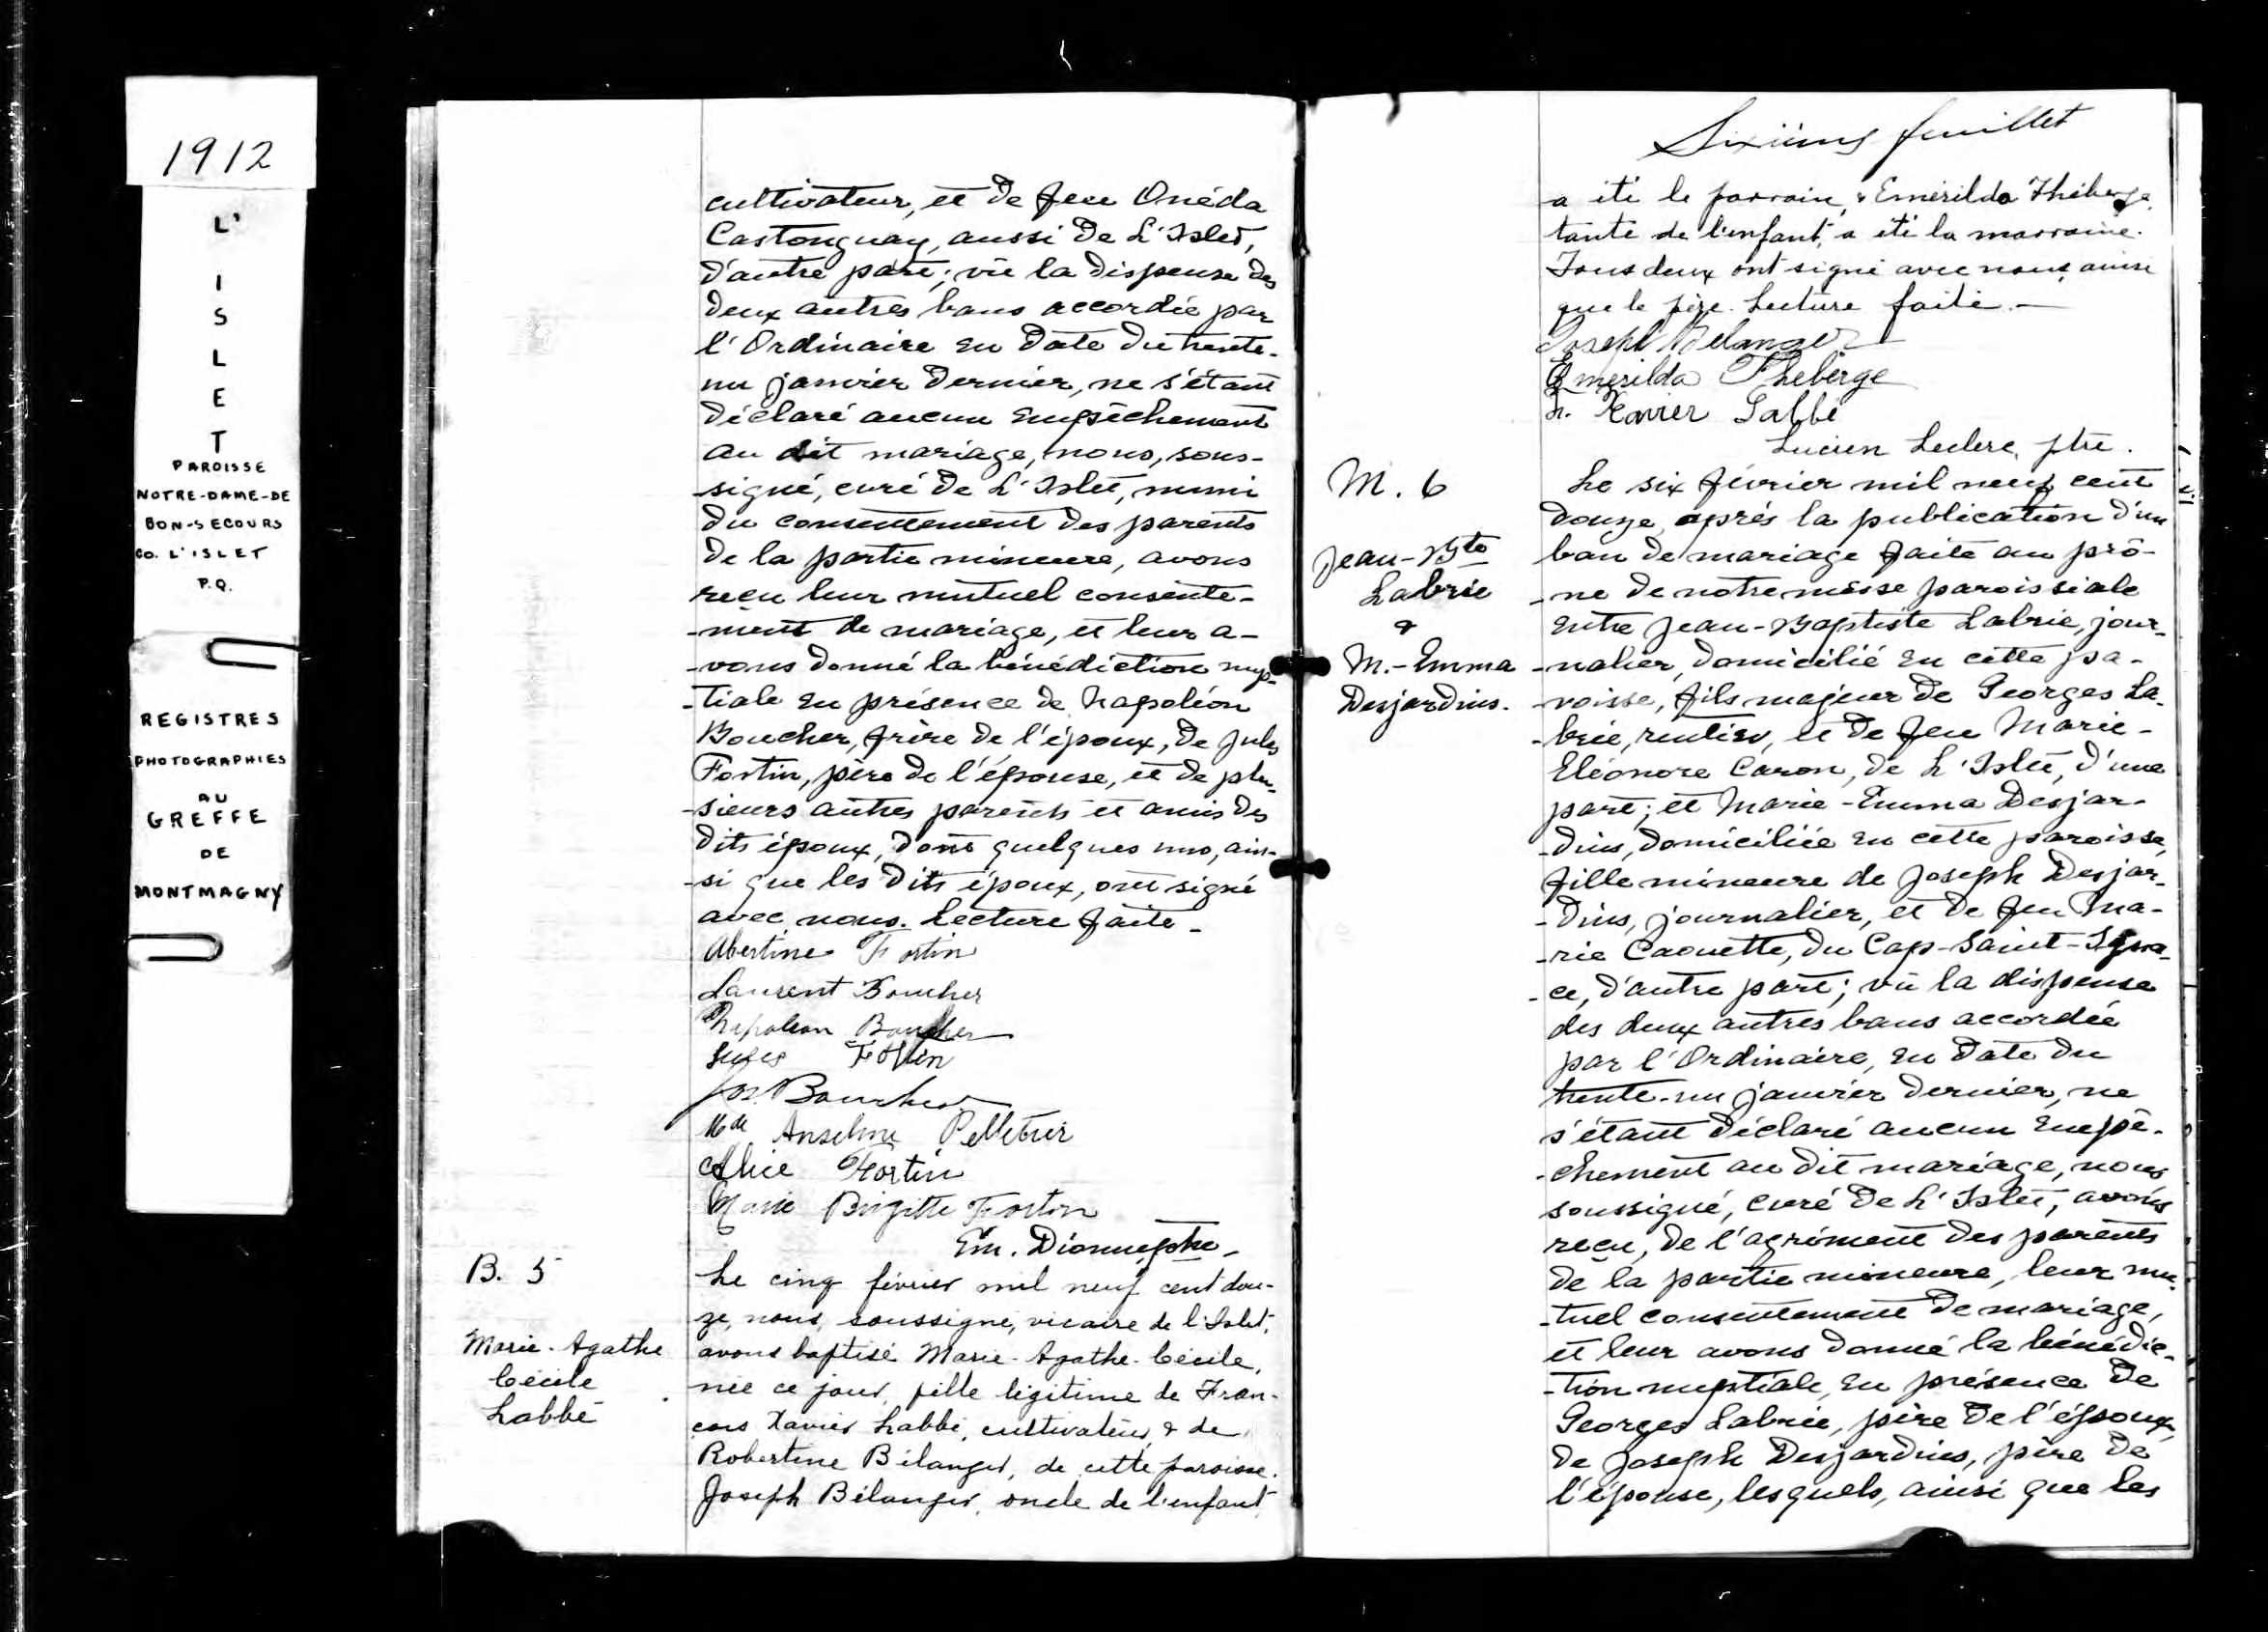 1912
L'
I
S
L
E
T
PAROISSE
NOTRE-DAME-DE
BON-SECOURS
CO. L'ISLET
P.Q.
REGISTRES
PHOTOGRAPHIES
AU
GREFFE
DE
MONTMAGNY
cultivateur, et de feue Onéda
Castonguay, aussi de L'Islet,
d'autre part; vû la dispense des
deux autres bans accordée par
l'Ordinaire en date du trente-
un janvier dernier, ne s'étant
déclaré aucun empêchement
au dit mariage, nous, sous-
-signé, curé de L'Islet, muni
du consentement des parents
de la partie mineure, avons
reçu leur mutuel consente-
-ment de mariage, et leur a-
-vons donné la bénédiction nup-
-tiale en présence de Napoléon
Boucher, frère de l'époux, de Jules
Fortin, père de l'épouse, et de plu-
-sieurs autres parents et amis des
dits époux, dont quelques uns, ain-
-si que les dits époux, ont signé
avec nous. Lecture faite-
Abertine Fortin
Laurent Boucher
Napoleon Boucher
Jules Fortin
Jos. Boucher
Mde Anselme Pelletier
Alice Fortin
Marie Brigitte Fortin
Em. Dionne, ptre-
B. 5
Marie-Agathe
Cécile
Labbé
Le cinq février mil neuf cent dou-
ze, nous, soussigné, vicaire de l'Islet,
avons baptisé Marie-Agathe-Cécile,
née ce jour, fille légitime de Fran-
çois Xavier Labbé, cultivateur, & de
Robertine Bélanger, de cette paroisse.
Joseph Bélanger, oncle de l'enfant,
Sixième feuillet
a été le parrain, & Emérilda Théberge,
tante de l'enfant, a été la marraine.
Tous deux ont signé avec nous, ainsi
que le père. Lecture faite.-
Joseph Belanger
Emerilda Theberge
Xavier Labbé
Lucien Leclerc, ptre.
M. 6
Jean-Bte
Labrie
&
M.-Emma
Desjardins.
Le six février mil neuf cent
douze, après la publication d'un
ban de mariage faite au prô-
-ne de notre messe paroissiale
entre Jean-Baptiste Labrie, jour-
-nalier, domicilié en cette pa-
-roisse, fils majeur de Georges La-
-brie, rentier, et de feu Marie-
Eléonore Caron, de L'Islet, d'une
part; et Marie-Emma Desjar-
-dins, domiciliée en cette paroisse,
fille mineure de Joseph Desjar-
-dins, journalier, et de feu Ma-
-rie Caouette, du Cap-Saint-Igna-
-ce, d'autre part; vû la dispense
des deux autres bans accordée
par l'Ordinaire, en date du
trente-un janvier dernier, ne
s'étant déclaré aucun empê-
-chement au dit mariage, nous
soussigné, curé de L'Islet, avons
reçu, de l'agrément des parents
de la partie mineure, leur mu-
-tuel consentement de mariage,
et leur avons donné la bénédic-
-tion nuptiale, en présence de
Georges Labrie, père de l'époux,
de Joseph Desjardins, père de
l'épouse, lesquels, ainsi que les